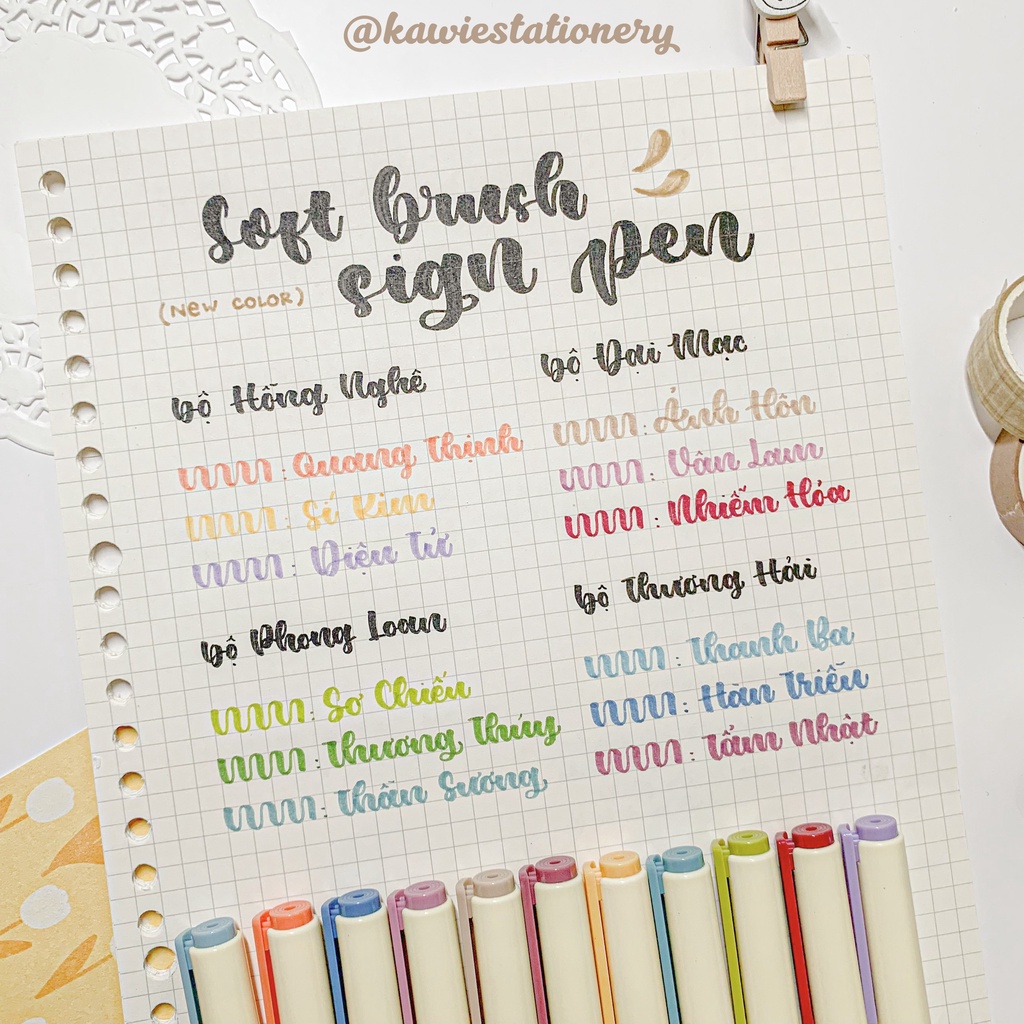 @kawiestationery
Soft brush
sign pen
(NEW COLOR)
bộ Hồng Nghê
: Quang Thịnh
: Sí Kim
: Diệu Tử
bộ Đại Mạc
: Ảnh Hôn
: Vân Lam
: Nhiễm Hỏa
bộ Phong Loan
: Sơ Chiếu
: Thương Thúy
: Thần Sương
bộ Thương Hải
: Thanh Ba
: Hàn Triều
: Tẩm Nhật